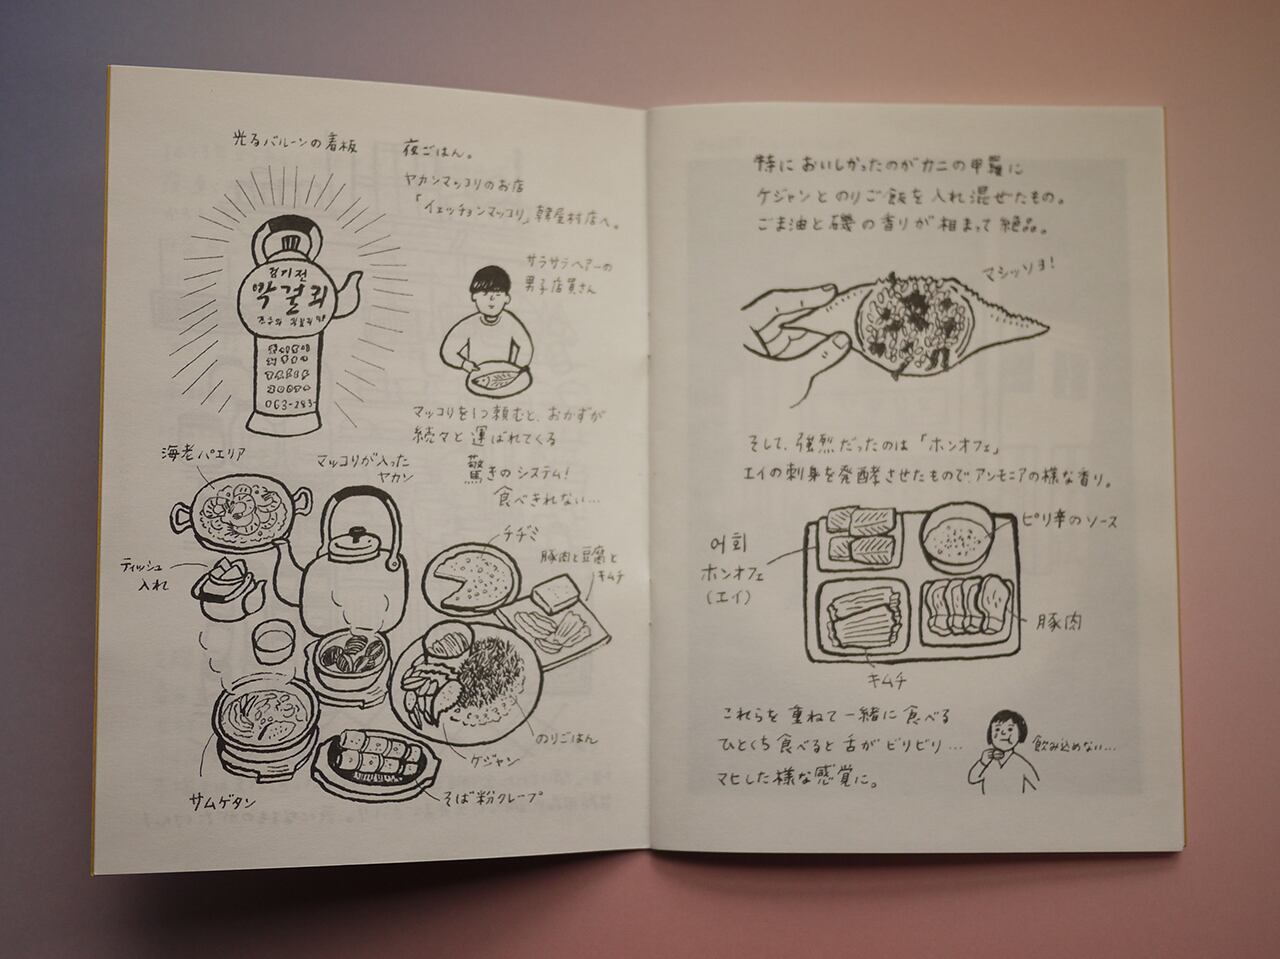 光るバルーンの看板
夜ごはん。
ヤカンマッコリのお店
「イェッチョンマッコリ」韓屋村店へ。
경기전
막걸리
063-283-
サラサラヘアーの
男子店員さん
マッコリを1つ頼むと、おかずが
続々と運ばれてくる
驚きのシステム!
食べきれない…
海老パエリア
マッコリが入った
ヤカン
ティッシュ
入れ
チヂミ
豚肉と豆腐と
キムチ
のりごはん
ケジャン
そば粉クレープ
サムゲタン
特においしかったのがカニの甲羅に
ケジャンとのりご飯を入れ混ぜたもの。
ごま油と磯の香りが相まって絶品。
マシッソヨ!
そして、強烈だったのは「ホンオフェ」
エイの刺身を発酵させたもので、アンモニアの様な香り。
ピリ辛のソース
어회
ホンオフェ
(エイ)
豚肉
キムチ
これらを重ねて一緒に食べる
ひとくち食べると舌がビリビリ…
マヒした様な感覚に。
飲み込めない…